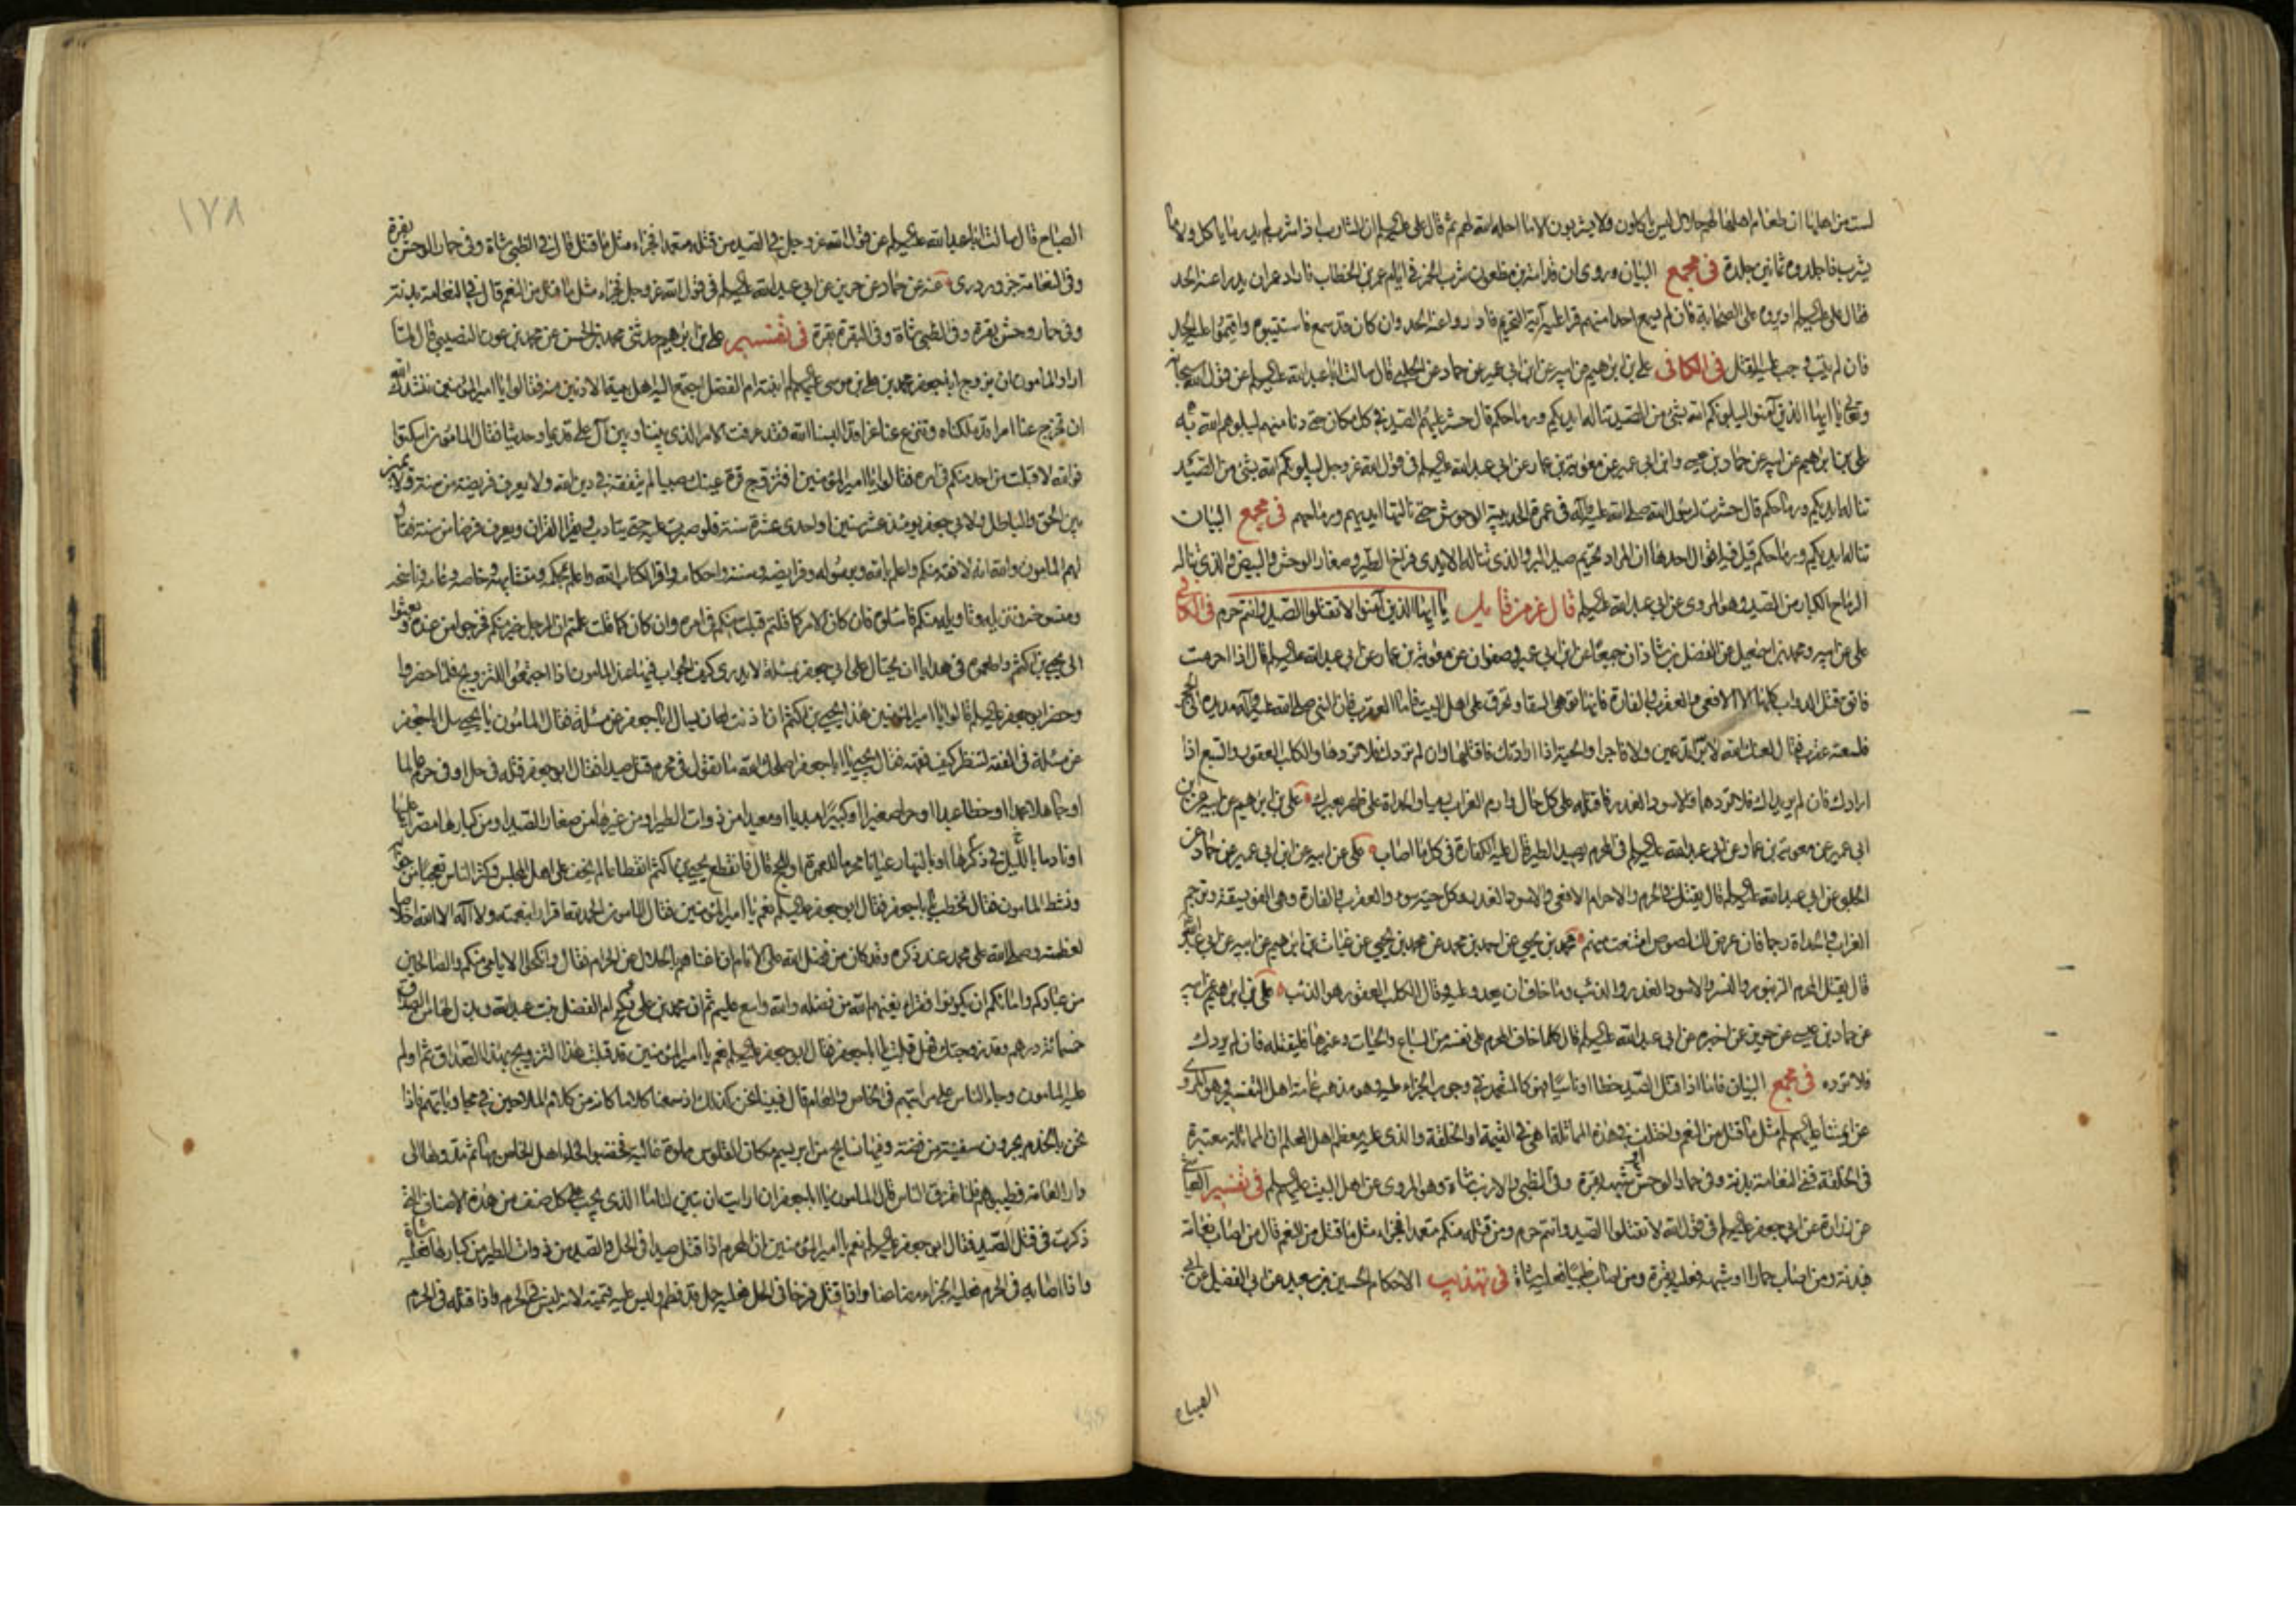 لست من اهلها ان طعام اهلها لهم حلال ليس ياكلون ولا يشربون الا ما احله الله لهم ثم قال على عليه السلم ان الشارب اذا شرب لم يدر ما ياكل ولا ما
يشرب فاجلدوه ثمانين جلدة فى مجمع البيان وروى ان قدامة بن مظعون شرب الخمر فى ايام عمر بن الخطاب فاراد عمر ان يدراء عنه الحد
فقال على عليه السلم اديروه على الصحابة فان لم يسمع احدا منهم قرا عليه آية التحريم فادرواعنه الحد وان كان قد سمع فاستتيبوه واقيموا عليه الحد
فان لم يتب وجب عليه القتل فى الكافى على بن ابراهيم عن ابيه عن ابن ابى عمير عن حماد عن الحلبى قال سالت ابا عبد الله عليه السلم عن قول الله سبحانه
وتعالى يا ايها الذين آمنوا ليبلونكم الله بشئ من الصيد تناله ايديكم ورماحكم قال حشر عليهم الصيد فى كل مكان حتى دنا منهم ليبلوهم الله به
على بن ابراهيم عن ابيه عن حماد بن عيسى وابن ابى عمير عن معوية بن عمار عن ابى عبد الله عليه السلم فى قول الله عز وجل ليبلونكم الله بشئ من الصيد
تناله ايديكم ورماحكم قال حشرت لرسول الله صلى الله عليه وآله فى عمرة الحديبية الوحوش حتى نالتها ايديهم ورماحهم فى مجمع البيان
تناله ايديكم ورماحكم قيل فيه اقوال احدها ان المراد تحريم صيد البر والذى تناله الايدى فراخ الطير وصغار الوحش والبيض والذى تناله
الرماح الكبار من الصيد وهو المروى عن ابى عبد الله عليه السلم قال عز من قايل يا ايها الذين آمنوا لا تقتلوا الصيد وانتم حرم فى الكافى
على عن ابيه ومحمد بن اسمعيل عن الفضل بن شاذان جميعا عن ابن ابى عمير وصفوان عن معوية بن عمار عن ابى عبد الله عليه السلم قال اذا احرمت
فاتق قتل الدواب كلها الا الافعى والعقرب والفارة فانها توهى السقاء وتحرق على اهل البيت واما العقرب فان النبى صلى الله عليه وآله مد يده الى الحجر
فلسعته عقرب فقال لعنك الله لا برا تدعين ولا فاجرا والحية اذا ارادتك فاقتلها وان لم تردك فلا تردها والكلب العقور والسبع اذا
ارادك فان لم يريداك فلا تردهما والاسود الغدر فاقتله على كل حال وارم الغراب رميا والحداة على ظهر بعيرك على بن ابراهيم عن ابيه عن ابن
ابى عمير عن معوية بن عمار عن ابى عبد الله عليه السلم فى المحرم يصيد الطير قال عليه الكفارة فى كل ما اصاب على عن ابيه عن ابن ابى عمير عن حماد عن
الحلبى عن ابى عبد الله عليه السلم قال يقتل فى الحرم والاحرام الافعى والاسود الغدر وكل حية سوء والعقرب والفارة وهى الفويسقة ويرجم
الغراب والحداة رجما فان عرض لك لصوص امتنعت منهم محمد بن يحيى عن احمد بن محمد عن محمد بن يحيى عن غياث بن ابراهيم عن ابيه عن ابى عبد الله
قال يقتل المحرم الزنبور والنسر والاسود الغدر والذئب وما خاف ان يعدو عليه وقال الكلب العقور هو الذئب على بن ابراهيم عن ابيه
عن حماد بن عيسى عن حريز عن اخبره عن ابى عبد الله عليه السلم قال كلما خاف المحرم على نفسه من السباع والحيات وغيرها فليقتله فان لم يردك
فلا ترده فى مجمع البيان فاما اذا قتل الصيد خطا او ناسيا فهو كالمتعمد فى وجوب الجزاء عليه وهو مذهب عامة اهل التفسير وهو المروى
عن ائمتنا عليهم السلم مثل ما قتل من النعم واختلف فى هذه المماثلة اهى فى القيمة او الخلقة والذى عليه معظم اهل العلم ان المماثلة معتبرة
فى الخلقة ففى النعامة بدنة وفى حمار الوحش وشبهه بقرة وفى الظبى والارنب شاة وهو المروى عن اهل البيت عليهم السلم فى تفسير العياشى
عن زرارة عن ابى جعفر عليه السلم فى قول الله لا تقتلوا الصيد وانتم حرم ومن قتله منكم متعمدا فجزاء مثل ما قتل من النعم قال من اصاب نعامة
فبدنة ومن اصاب حمارا او شبهه فعليه بقرة ومن اصاب ظبيا فعليه شاة فى تهذيب الاحكام الحسين بن سعيد عن ابى الفضيل عن ابى
الصباح
١٧٨
الصباح قال سالت ابا عبد الله عليه السلم عن قول الله عز وجل فى الصيد من قتله متعمدا فجزاء مثل ما قتل قال فى الظبى شاة وفى حمار الوحش بقرة
وفى النعامة جزور روى عنه عن حماد عن حريز عن ابى عبد الله عليه السلم فى قول الله عز وجل فجزاء مثل ما قتل من النعم قال فى النعامة بدنة
وفى حمار وحش بقرة وفى الظبى شاة وفى البقرة بقرة فى تفسير على بن ابراهيم حدثنى محمد بن الحسن عن محمد بن عون النصيبى قال لما
اراد المامون ان يزوج ابا جعفر محمد بن على بن موسى عليهم السلم ابنته ام الفضل اجتمع اليه اهل بيته الادنين منه فقالوا يا امير المؤمنين ننشدك الله
ان تخرج عنا امرا قد ملكناه وتنزع عنا عزا قد البسنا الله فقد عرفت الامر الذى بيننا وبين آل على قديما وحديثا فقال المامون اسكتوا
فوالله لا قبلت من احد منكم فى امره فقالوا يا امير المؤمنين افتزوج قرة عينك صبيا لم يتفقه فى دين الله ولا يعرف فريضة من سنة ولا يميز
بين الحق والباطل ولابى جعفر يومئذ عشر سنين او احدى عشرة سنة فلو صبرت عليه حتى يتادب ويقرا القران ويعرف فرضا من سنة فقال
لهم المامون والله انه لافقه منكم واعلم بالله وبرسوله وفرايضه وسننه واحكامه واقرا لكتاب الله واعلم بمحكمه ومتشابهه وخاصه وعامه وناسخه
ومنسوخه وتنزيله وتاويله منكم فاسئلوه فان كان الامر كما قلتم قبلت منكم فى امره وان كان كما قلت علمتم ان الرجل خير منكم فخرجوا من عنده وبعثوا
الى يحيى بن اكثم واطمعوه فى هدايا ان يحتال على ابى جعفر بمسئلة لا يدرى كيف الجواب فيها عند المامون اذا اجتمعوا للتزويج فلما حضروا
وحضر ابو جعفر عليه السلم قالوا يا امير المؤمنين هذا يحيى بن اكثم ان اذنت له ان يسال ابا جعفر عن مسئلة فقال المامون يا يحيى سل ابا جعفر
عن مسئلة فى الفقه لننظر كيف فقهه فقال يحيى يا ابا جعفر اصلحك الله ما تقول فى محرم قتل صيدا فقال ابو جعفر قتله فى حل او فى حرم عالما
او جاهلا عمدا او خطا عبدا او حرا صغيرا او كبيرا مبديا او معيدا من ذوات الطير او من غيرها من صغار الصيد او من كبارها مصرا عليها
او نادما بالليل فى وكرها او بالنهار عيانا محرما للعمرة او للحج قال فانقطع يحيى بن اكثم انقطاعا لم يخف على اهل المجلس وكثر الناس تعجبا من جوابه
ونشط المامون فقال تخطب يا ابا جعفر فقال ابو جعفر عليه السلم نعم يا امير المؤمنين فقال المامون الحمد لله اقرارا بنعمته ولا اله الا الله اخلاصا
لعظمته وصلى الله على محمد عند ذكره وقد كان من فضل الله على الانام ان اغناهم بالحلال عن الحرام فقال وانكحوا الايامى منكم والصالحين
من عبادكم وامائكم ان يكونوا فقراء يغنهم الله من فضله والله واسع عليم ثم ان محمد بن على نكح ام الفضل بنت عبد الله وبذل لها من الصداق
خمسمائة درهم وقد زوجتك فهل قبلت يا ابا جعفر فقال ابو جعفر عليه السلم نعم يا امير المؤمنين قد قبلت هذا التزويج بهذا الصداق ثم اولم
عليه المامون وجاء الناس على مراتبهم فى الخاص والعام قال فبينا نحن كذلك اذ سمعنا كلاما كانه من كلام الملاحين فى مجاوباتهم فاذا
نحن بالخدم يجرون سفينة من فضة وفيها نسايج من ابريسم مكان القلوس مملوة غالية فخضبوا لحا اهل الخاص بها ثم مدوها الى
دار العامة فطيبوهم فلما تفرق الناس قال المامون يا ابا جعفر ان رايت ان تبين لنا ما الذى يجب على كل صنف من هذه الاصناف التى
ذكرت فى قتل الصيد فقال ابو جعفر عليه السلم نعم يا امير المؤمنين ان المحرم اذا قتل صيدا فى الحل والصيد من ذوات الطير من كبارها فعليه شاة
واذا اصابه فى الحرم فعليه الجزاء مضاعفا واذا قتل فرخا فى الحل فعليه حمل قد فطم وليس عليه قيمته لانه ليس فى الحرم واذا قتله فى الحرم